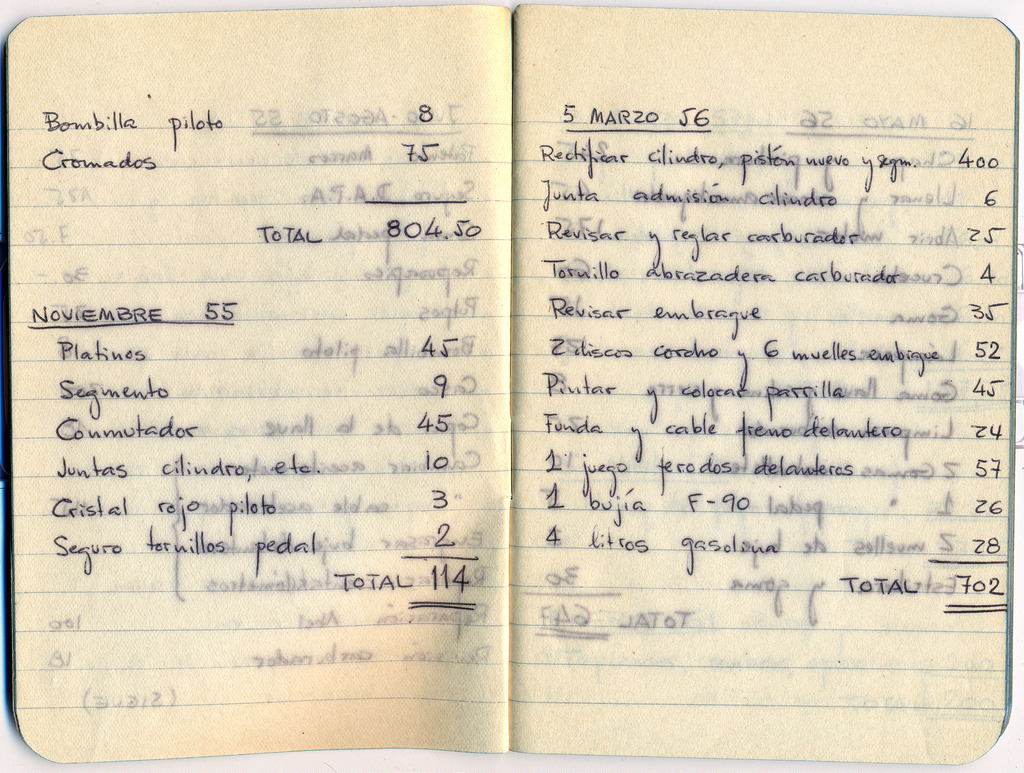 Bombilla piloto 8
Cromados 75
TOTAL 804.50
NOVIEMBRE 55
Platinos 45
Segmento 9
Conmutador 45
Juntas cilindro, etc. 10
Cristal rojo piloto 3
Seguro tornillos pedal 2
TOTAL 114
5 MARZO 56
Rectificar cilindro, pistón nuevo y segm. 400
Junta admisión cilindro 6
Revisar y reglar carburador 25
Tornillo abrazadera carburador 4
Revisar embrague 35
2 discos corcho y 6 muelles embrague 52
Pintar y colocar parrilla 45
Funda y cable freno delantero 24
1 juego ferodos delanteros 57
1 bujía F-90 26
4 litros gasolina 28
TOTAL 702